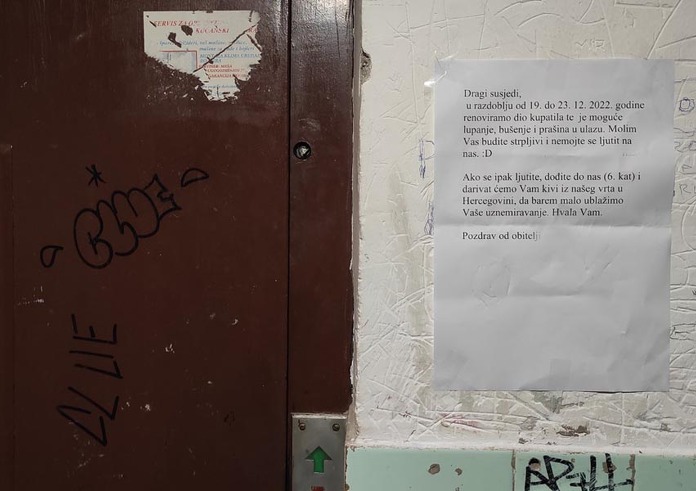 SERVIS ZA
KUĆANSKI
Dragi susjedi,
u razdoblju od 19. do 23. 12. 2022. godine
renoviramo dio kupatila te je moguće
lupanje, bušenje i prašina u ulazu. Molim
Vas budite strpljivi i nemojte se ljutit na
nas. :D
Ako se ipak ljutite, dođite do nas (6. kat) i
darivat ćemo Vam kivi iz našeg vrta u
Hercegovini, da barem malo ublažimo
Vaše uznemiravanje. Hvala Vam.
Pozdrav od obitelji